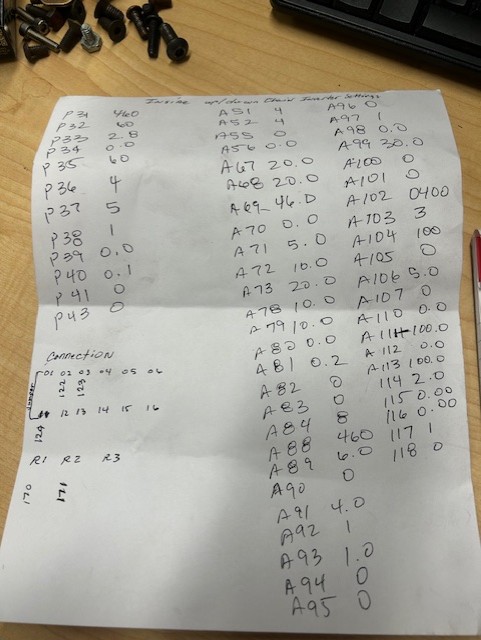 Incline up/down Chain Inverter Settings
P31 460
P32 60
P33 2.8
P34 0.0
P35 60
P36 4
P37 5
P38 1
P39 0.0
P40 0.1
P41 0
P43 0
Connection
01 02 03 04 05 06
122 123
Jumper
11 12 13 14 15 16
124
R1 R2 R3
170 171
A51 4
A52 4
A55 0
A56 0.0
A67 20.0
A68 20.0
A69 46.0
A70 0.0
A71 5.0
A72 10.0
A73 20.0
A78 10.0
A79 10.0
A80 0.0
A81 0.2
A82 0
A83 0
A84 8
A88 460
A89 6.0
A90 0
A91 4.0
A92 1
A93 1.0
A94 0
A95 0
A96 0
A97 1
A98 0.0
A99 30.0
A100 0
A101 0
A102 0400
A103 3
A104 100
A105 0
A106 5.0
A107 0
A110 0.0
A111 100.0
A112 0.0
A113 100.0
114 2.0
115 0.00
116 0.00
117 1
118 0